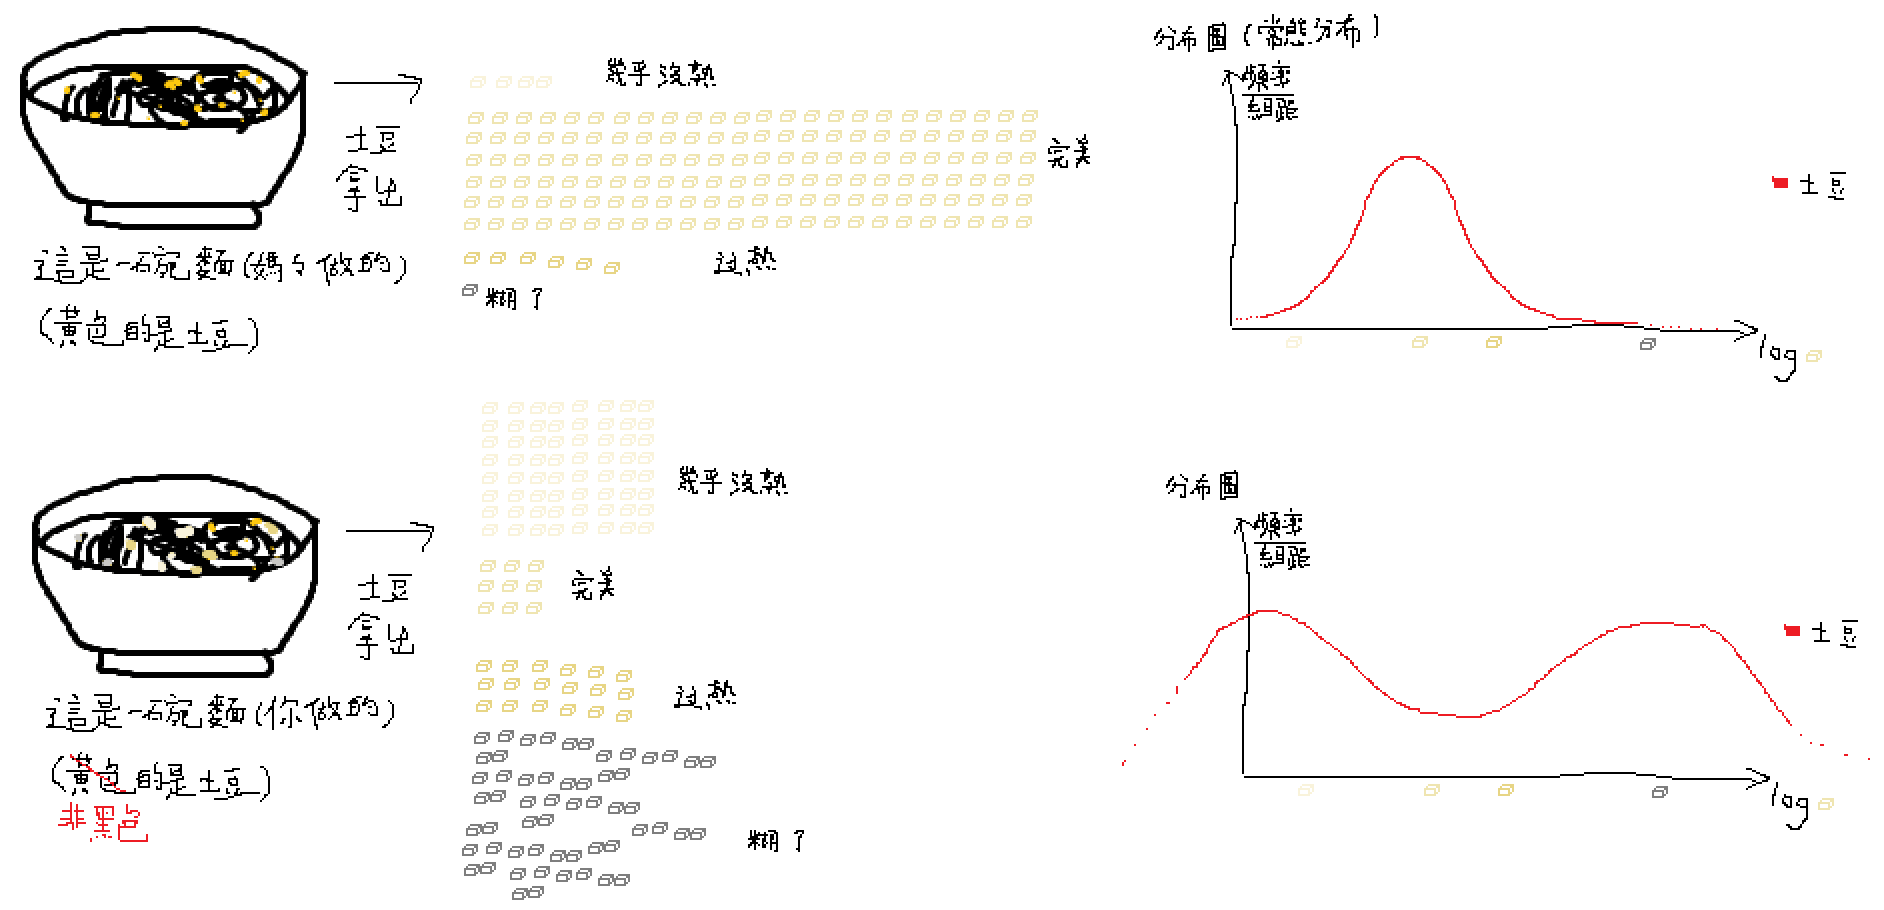 這是一碗麵(媽々做的)
(黃色的是土豆)
土豆
拿出
幾乎沒熟
完美
过熟
糊了
分布圖(常態分布)
頻率
組距
土豆
log
這是一碗麵(你做的)
(黃色的是土豆)
非黑色
土豆
拿出
幾乎沒熟
完美
过熟
糊了
分布圖
頻率
組距
土豆
log